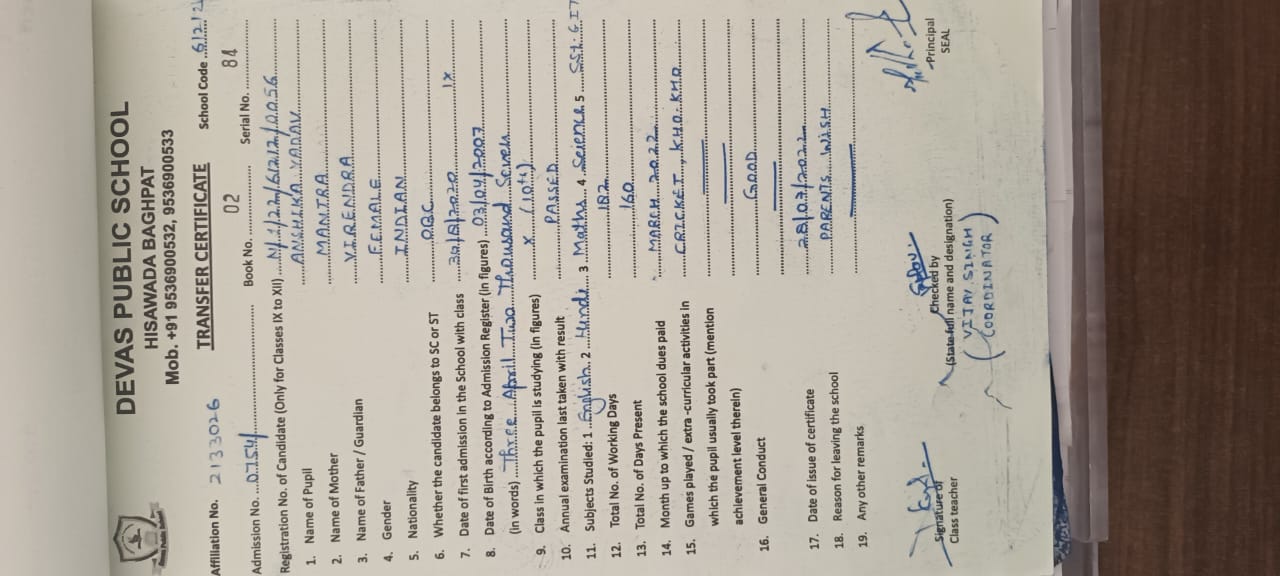 DEVAS PUBLIC SCHOOL
HISAWADA BAGHPAT
Mob. +91 9536900532, 9536900533
Affiliation No. 2133026 TRANSFER CERTIFICATE School Code ..612
Admission No. ...0754/ Book No. 02 Serial No. 84
Registration No. of Candidate (Only for Classes IX to XII) N/1/22/61212/0056
1. Name of Pupil ANSHIKA YADAV
2. Name of Mother MANTRA
3. Name of Father / Guardian VIRENDRA
4. Gender FEMALE
5. Nationality INDIAN
6. Whether the candidate belongs to SC or ST OBC
7. Date of first admission in the School with class /8/2020 IX
8. Date of Birth according to Admission Register (in figures) 03/04/2007
(in words) Three April Two Thousand Seven
9. Class in which the pupil is studying (in figures) X (10th)
10. Annual examination last taken with result PASSED
11. Subjects Studied: 1 English 2 Hindi 3 Maths 4 Science 5 SST
12. Total No. of Working Days 182
13. Total No. of Days Present 160
14. Month up to which the school dues paid MARCH 2022
15. Games played / extra -curricular activities in CRICKET, KHO KHO
which the pupil usually took part (mention
achievement level therein)
16. General Conduct GOOD
17. Date of issue of certificate 28/07/2022
18. Reason for leaving the school PARENTS WISH
19. Any other remarks
Signature of
Class teacher
Checked by
(State full name and designation)
(VIJAY SINGH
COORDINATOR)
Principal
SEAL